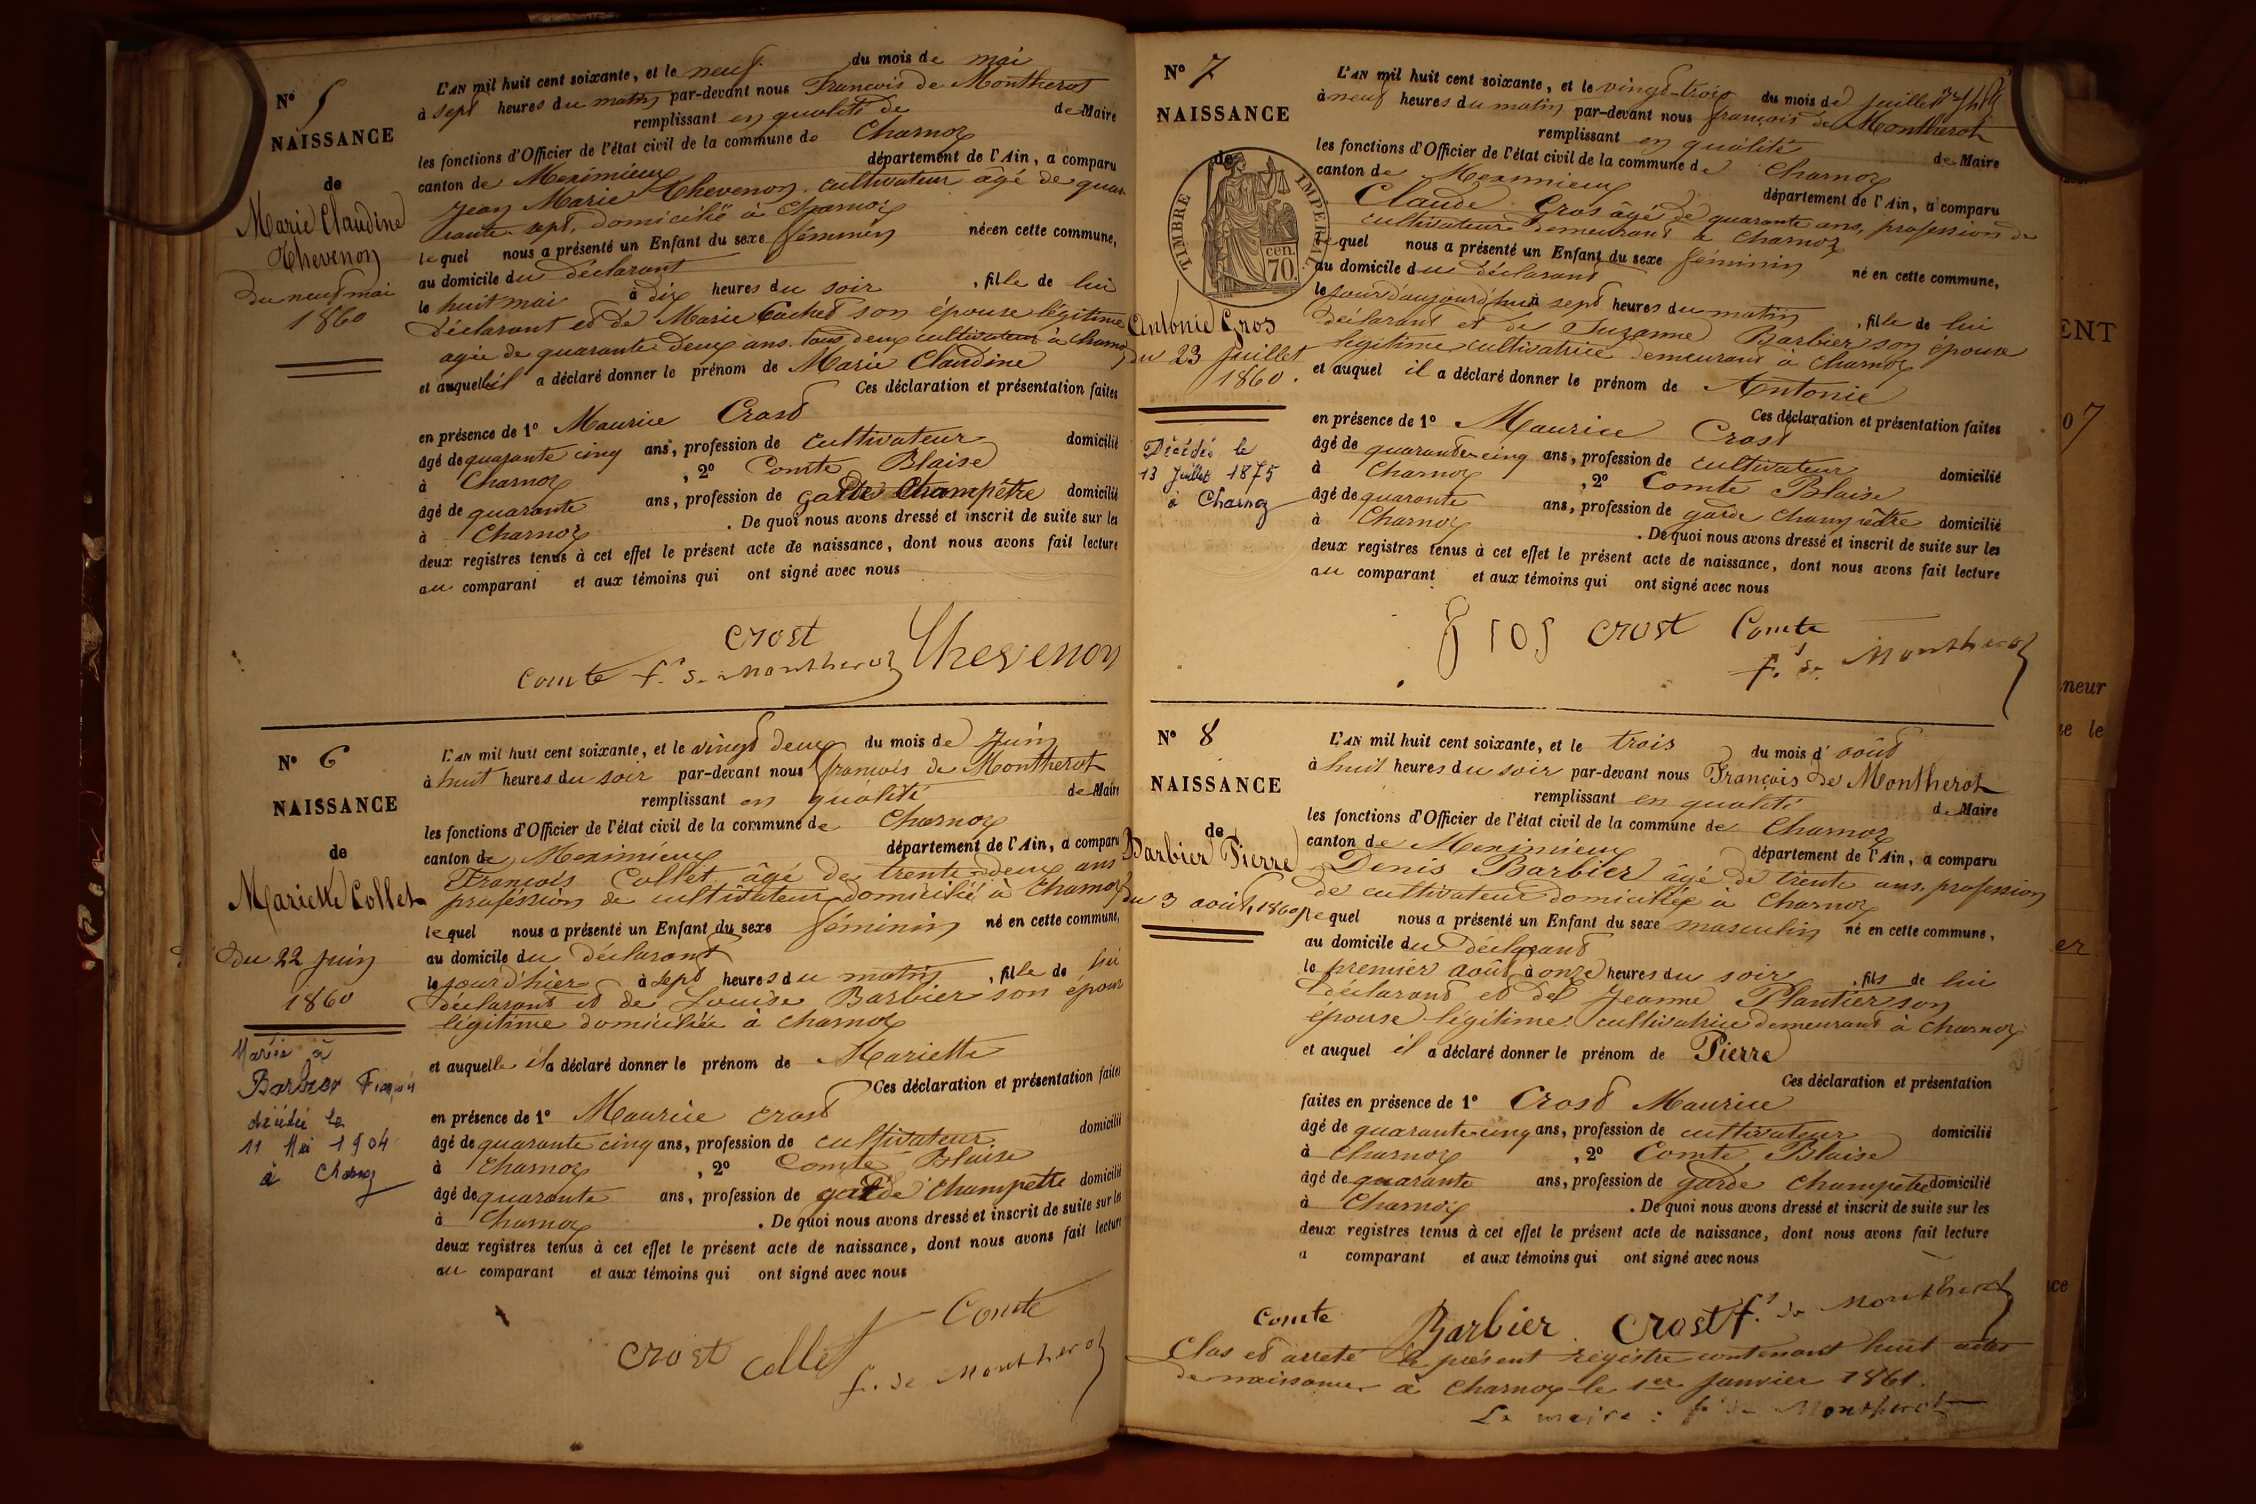 N° 5
NAISSANCE
de
Marie Claudine
Thevenon
du neuf mai
1860
L'AN mil huit cent soixante, et le neuf du mois de mai
à sept heures du matin par-devant nous François de Montherot
remplissant en qualité de de Maire
les fonctions d'Officier de l'état civil de la commune de Charnoz
canton de Meximieux département de l'Ain, a comparu
Jean Marie Thevenon cultivateur âgé de quar
rante sept, domicilié à Charnoz
lequel nous a présenté un Enfant du sexe féminin née en cette commune,
au domicile du déclarant
le huit mai à dix heures du soir, fille de lui
déclarant et de Marie Cachet son épouse légitime
agée de quarante deux ans tous deux cultivateurs à Charnoz
et auquel il a déclaré donner le prénom de Marie Claudine
Ces déclaration et présentation faites
en présence de 1° Maurice Crost
âgé de quarante cinq ans, profession de cultivateur domicilié
à Charnoz, 2° Comte Blaise
âgé de quarante ans, profession de garde Champêtre domicilié
à Charnoz. De quoi nous avons dressé et inscrit de suite sur les
deux registres tenus à cet effet le présent acte de naissance, dont nous avons fait lecture
au comparant et aux témoins qui ont signé avec nous
crost
comte f. de Montherot Thevenon
N° 6
NAISSANCE
de
Mariette Collet
du 22 Juin
1860
Mariée à
Barbier François
décédée le
11 Mai 1904
à Charnoz
L'AN mil huit cent soixante, et le vingt deux du mois de Juin
à huit heures du soir par-devant nous françois de Montherot
remplissant en qualité de Maire
les fonctions d'Officier de l'état civil de la commune de Charnoz
canton de Meximieux département de l'Ain, a comparu
François Collet âgé de trente-deux ans
profession de cultivateur domicilié à Charnoz
lequel nous a présenté un Enfant du sexe féminin né en cette commune,
au domicile du déclarant
le jour d'hier à sept heures du matin, fille de lui
déclarant et de Louise Barbier son épouse
légitime domiciliée à Charnoz
et auquelle il a déclaré donner le prénom de Mariette
Ces déclaration et présentation faites
en présence de 1° Maurice crost
âgé de quarante cinq ans, profession de cultivateur domicilié
à Charnoz, 2° Comte Blaise
âgé de quarante ans, profession de garde champetre domicilié
à Charnoz. De quoi nous avons dressé et inscrit de suite sur les
deux registres tenus à cet effet le présent acte de naissance, dont nous avons fait lecture
au comparant et aux témoins qui ont signé avec nous
Comte
crost Collet
f. de Montherot
N° 7
NAISSANCE
de
TIMBRE IMPERIAL
70 cen.
Antonie Gros
du 23 Juillet
1860.
Décédée le
13 Juillet 1875
à Charnoz
L'AN mil huit cent soixante, et le vingt-trois du mois de Juillet
à neuf heures du matin par-devant nous françois de Montherot
remplissant en qualité de Maire
les fonctions d'Officier de l'état civil de la commune de Charnoz
canton de Meximieux département de l'Ain, a comparu
Claude Gros âgé de quarante ans, profession de
cultivateur demeurant à Charnoz
lequel nous a présenté un Enfant du sexe féminin né en cette commune,
au domicile du déclarant
le jour d'aujourd'hui à sept heures du matin, fille de lui
déclarant et de Suzanne Barbier son épouse
légitime cultivatrice demeurant à Charnoz
et auquel il a déclaré donner le prénom de Antonie
Ces déclaration et présentation faites
en présence de 1° Maurice Crost
âgé de quarante-cinq ans, profession de cultivateur domicilié
à Charnoz, 2° Comte Blaise
âgé de quarante ans, profession de garde champêtre domicilié
à Charnoz. De quoi nous avons dressé et inscrit de suite sur les
deux registres tenus à cet effet le présent acte de naissance, dont nous avons fait lecture
au comparant et aux témoins qui ont signé avec nous
gros crost Comte
f. de Montherot
N° 8
NAISSANCE
de
Barbier Pierre
du 3 août 1860
L'AN mil huit cent soixante, et le trois du mois d'août
à huit heures du soir par-devant nous François de Montherot
remplissant en qualité de Maire
les fonctions d'Officier de l'état civil de la commune de Charnoz
canton de Meximieux département de l'Ain, a comparu
Denis Barbier âgé de trente ans, profession
de cultivateur domiciliée à Charnoz
lequel nous a présenté un Enfant du sexe masculin né en cette commune,
au domicile du Déclarant
le premier août à onze heures du soir, fils de lui
déclarant et de Jeanne Plantier son
épouse légitime cultivatrice demeurant à Charnoz
et auquel il a déclaré donner le prénom de Pierre
Ces déclaration et présentation
faites en présence de 1° Crost Maurice
âgé de quarante-cinq ans, profession de cultivateur domicilié
à Charnoz, 2° Comte Blaise
âgé de quarante ans, profession de garde champêtre domicilié
à Charnoz. De quoi nous avons dressé et inscrit de suite sur les
deux registres tenus à cet effet le présent acte de naissance, dont nous avons fait lecture
a comparant et aux témoins qui ont signé avec nous
Comte Barbier crost f. de Montherot
Clos et arreté le présent régistre contenant huit actes
de naissance à Charnoz le 1er Janvier 1861.
Le maire : f. de Montherot
ENT
07
neur
ue le
er
ce